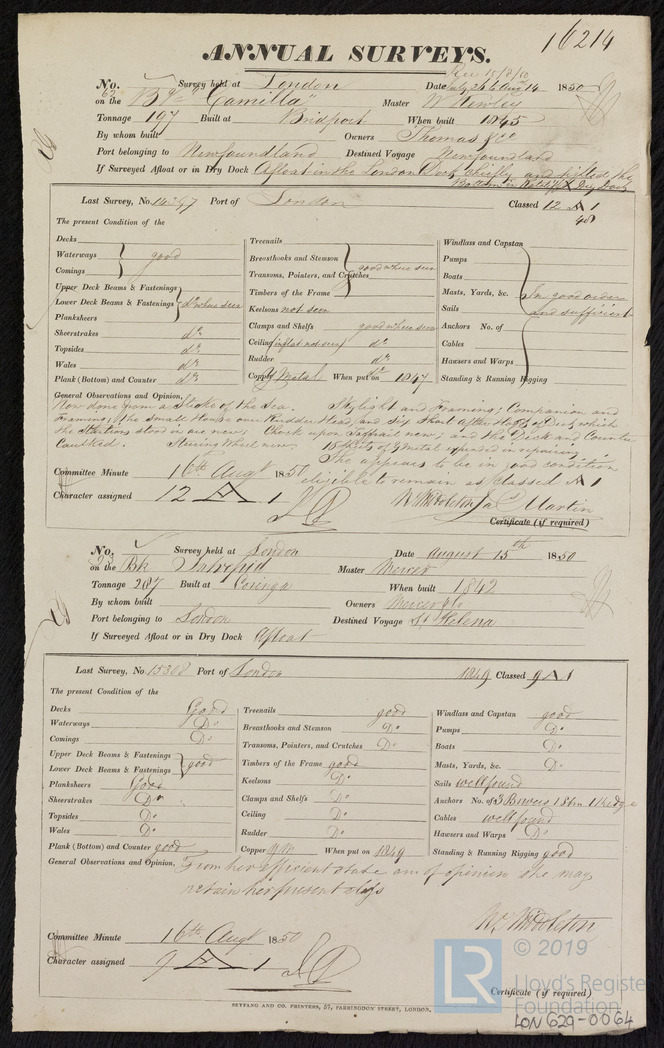 16214
ANNUAL SURVEYS.
Rec 15/8/50
No. 62 Survey held at London Date July 24 to Augt 14 1850
on the Bgne "Camilla" Master W Hemley
Tonnage 197 Built at Bridport When built 1845
By whom built Owners Thomas & Co
Port belonging to Newfoundland Destined Voyage Newfoundland
If Surveyed Afloat or in Dry Dock Afloat in the London Dock chiefly and filled the
Bottom in Dry Dock
Last Survey, No. 14347 Port of London Classed 12 A 1
48
The present Condition of the
Decks
Waterways good
Comings
Upper Deck Beams & Fastenings
Lower Deck Beams & Fastenings do where seen
Planksheers
Sheerstrakes do
Topsides do
Wales do
Plank (Bottom) and Counter do
Treenails
Breasthooks and Stemson
Transoms, Pointers, and Crutches good where seen
Timbers of the Frame
Keelsons not seen
Clamps and Shelfs good where seen
Ceiling (in flat not seen) do
Rudder do
Copper Y Metal When put on 1847
Windlass and Capstan
Pumps
Boats
Masts, Yards, &c. In good order
Sails and sufficient
Anchors No. of
Cables
Hawsers and Warps
Standing & Running Rigging
General Observations and Opinion,
Now done from a Stroke of the Sea. Skylight and Framing; Companion and
Framing; the small House over Rudder Head, and Deck which
the stood in are new; Chock upon Taffrail new; and the Deck and Counter
Caulked. Steering Wheel new. Sheets of Y Metal expended in repairing
She appears to be in good condition
eligible to remain as classed A 1
Committee Minute 16th Augt 1850
Character assigned 12 A 1
W Middleton Jas Martin
Certificate (if required)
No. Survey held at London Date August 15th 1850
on the Bk Intrepid Master Mercer
Tonnage 287 Built at Coringa When built 1842
By whom built Owners Mercer & Co
Port belonging to London Destined Voyage St Helena
If Surveyed Afloat or in Dry Dock Afloat
Last Survey, No. 15308 Port of London 1849 Classed 9 A 1
The present Condition of the
Decks Good
Waterways Do
Comings Do
Upper Deck Beams & Fastenings
Lower Deck Beams & Fastenings good
Planksheers Good
Sheerstrakes Do
Topsides Do
Wales Do
Plank (Bottom) and Counter good
Treenails good
Breasthooks and Stemson Do
Transoms, Pointers, and Crutches Do
Timbers of the Frame good
Keelsons Do
Clamps and Shelfs Do
Ceiling Do
Rudder Do
Copper YM When put on 1849
Windlass and Capstan good
Pumps Do
Boats Do
Masts, Yards, &c. Do
Sails well found
Anchors No. of 3 Bowers 1 Stm 1 Kedge
Cables well found
Hawsers and Warps Do
Standing & Running Rigging good
General Observations and Opinion, From her efficient state am of opinion she may
retain her present class
Wm Middleton
Committee Minute 16th Augt 1850
Character assigned 9 A 1
Certificate (if required)
SEYFANG AND CO. PRINTERS, 57, FARRINGDON STREET, LONDON.
LR © 2019
Lloyd's Register
Foundation
LON 629-0064